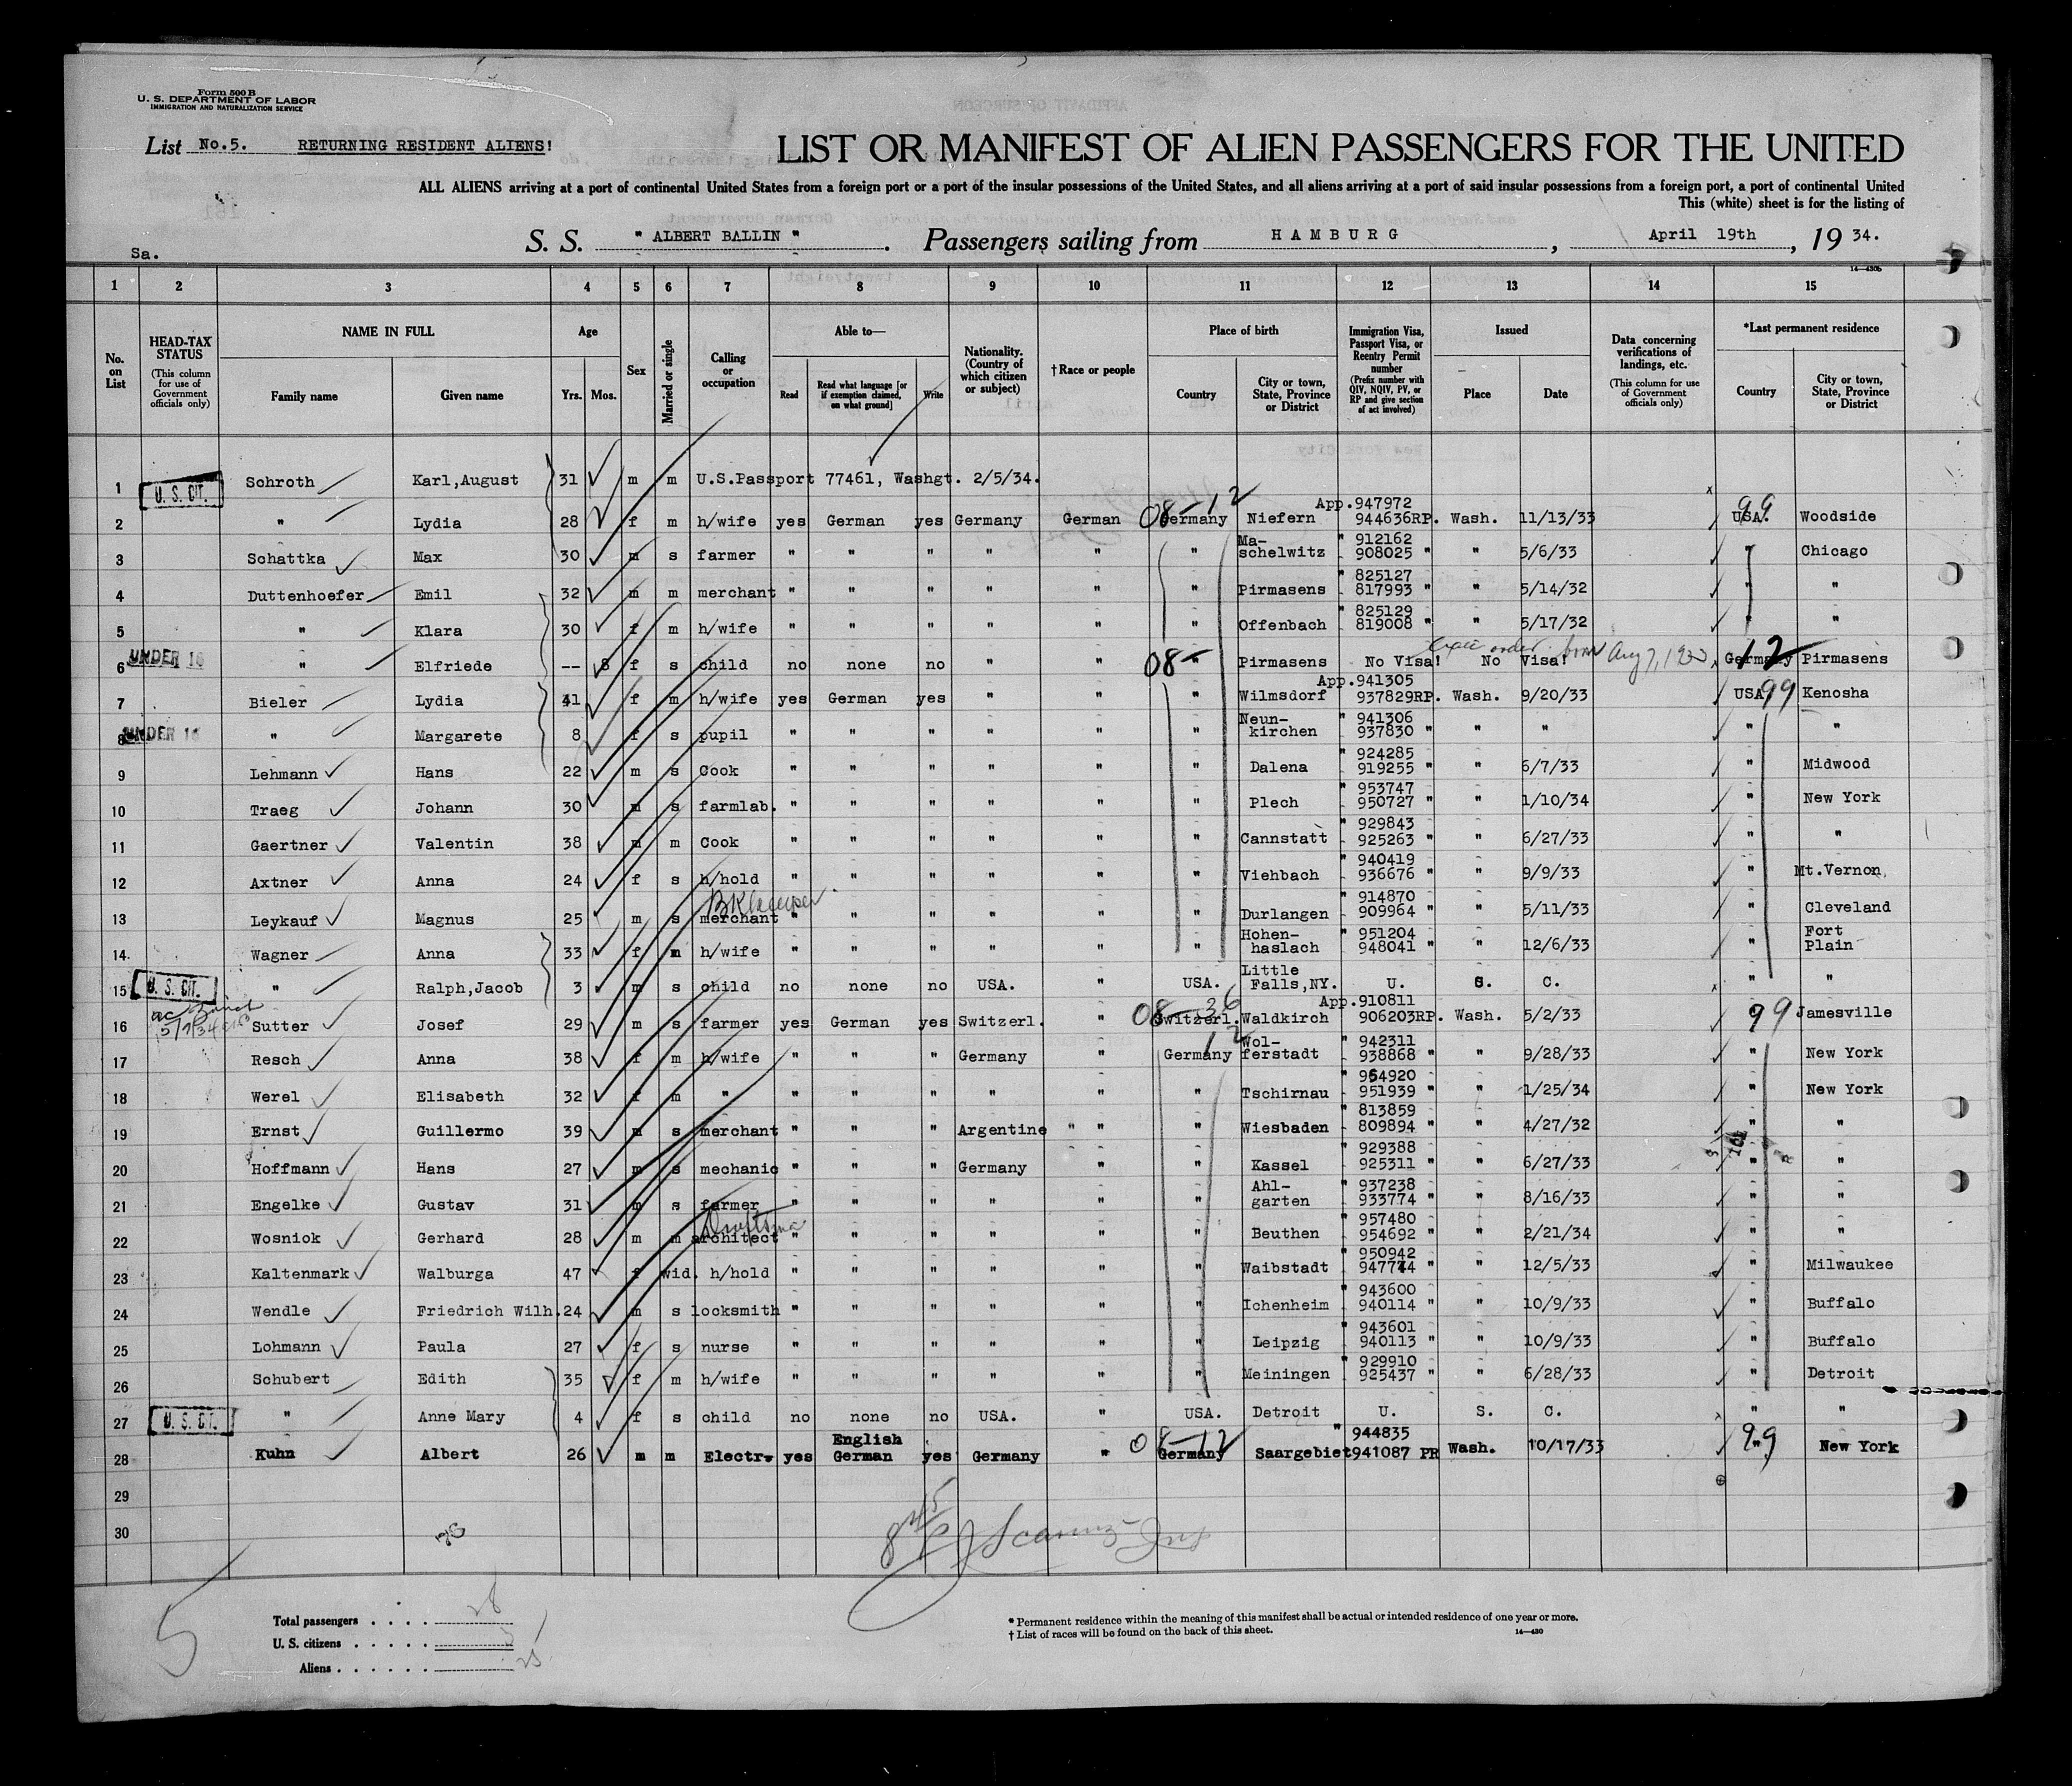 Form 500 B
U. S. DEPARTMENT OF LABOR
IMMIGRATION AND NATURALIZATION SERVICE
List No.5. RETURNING RESIDENT ALIENS!
LIST OR MANIFEST OF ALIEN PASSENGERS FOR THE UNITED
ALL ALIENS arriving at a port of continental United States from a foreign port or a port of the insular possessions of the United States, and all aliens arriving at a port of said insular possessions from a foreign port, a port of continental United
This (white) sheet is for the listing of
Sa.
S. S. " ALBERT BALLIN " . Passengers sailing from HAMBURG , April 19th , 19 34.
14—430b
1 2 3 4 5 6 7 8 9 10 11 12 13 14 15
No. on List
HEAD-TAX STATUS (This column for use of Government officials only)
NAME IN FULL
Family name Given name
Age
Yrs. Mos.
Sex
Married or single
Calling or occupation
Able to—
Read Read what language [or if exemption claimed, on what ground] Write
Nationality. (Country of which citizen or subject)
† Race or people
Place of birth
Country City or town, State, Province or District
Immigration Visa, Passport Visa, or Reentry Permit number (Prefix number with QIV, NQIV, PV, or RP and give section of act involved)
Issued
Place Date
Data concerning verifications of landings, etc. (This column for use of Government officials only)
*Last permanent residence
Country City or town, State, Province or District
1 U. S. CIT. Schroth Karl,August 31 m m U.S.Passport 77461, Washgt. 2/5/34.
2 " Lydia 28 f m h/wife yes German yes Germany German 08-12 Germany Niefern App.947972 944636RP. Wash. 11/13/33 99 USA. Woodside
3 Schattka Max 30 m s farmer " " " " " " Ma-schelwitz " 912162 908025 " " 5/6/33 " Chicago
4 Duttenhoefer Emil 32 m m merchant " " " " " " Pirmasens " 825127 817993 " " 5/14/32 " "
5 " Klara 30 f m h/wife " " " " " " Offenbach " 825129 819008 " " 5/17/32 " "
6 UNDER 16 " Elfriede -- 8 f s child no none no " " 08- " Pirmasens No Visa! No Visa! born Aug 7, 1933 12 Germany Pirmasens
7 Bieler Lydia 41 f m h/wife yes German yes " " " Wilmsdorf App.941305 937829RP. Wash. 9/20/33 USA 99 Kenosha
8 UNDER 16 " Margarete 8 f s pupil " " " " " " Neun-kirchen " 941306 937830 " " " " "
9 Lehmann Hans 22 m s Cook " " " " " " Dalena " 924285 919255 " " 6/7/33 " Midwood
10 Traeg Johann 30 m s farmlab. " " " " " " Plech " 953747 950727 " " 1/10/34 " New York
11 Gaertner Valentin 38 m m Cook " " " " " " Cannstatt " 929843 925263 " " 6/27/33 " "
12 Axtner Anna 24 f s h/hold " " " " " " Viehbach " 940419 936676 " " 9/9/33 " Mt.Vernon,
13 Leykauf Magnus 25 m s merchant " " " " " " Durlangen " 914870 909964 " " 5/11/33 " Cleveland
14 Wagner Anna 33 f m h/wife " " " " " " Hohen-haslach " 951204 948041 " " 12/6/33 " Fort Plain
15 U. S. CIT. " Ralph,Jacob 3 m s child no none no USA. " USA. Little Falls,NY. U. S. C. " "
16 5/7/34 Sutter Josef 29 m s farmer yes German yes Switzerl. " 08-36 Switzerl. Waldkirch App.910811 906203RP. Wash. 5/2/33 99 Jamesville
17 Resch Anna 38 f m h/wife " " " Germany " 12 Germany Wol-ferstadt " 942311 938868 " " 9/28/33 " New York
18 Werel Elisabeth 32 f m " " " " " " " Tschirnau " 954920 951939 " " 1/25/34 " New York
19 Ernst Guillermo 39 m s merchant " " " Argentine " " " Wiesbaden " 813859 809894 " " 4/27/32 " "
20 Hoffmann Hans 27 m s mechanic " " " Germany " " Kassel " 929388 925311 " " 6/27/33 " "
21 Engelke Gustav 31 m s farmer " " " " " " Ahl-garten " 937238 933774 " " 8/16/33 " "
22 Wosniok Gerhard 28 m m architect " " " " " " Beuthen " 957480 954692 " " 2/21/34 " "
23 Kaltenmark Walburga 47 f wid. h/hold " " " " " " Waibstadt " 950942 947774 " " 12/5/33 " Milwaukee
24 Wendle Friedrich Wilh. 24 m s locksmith " " " " " " Ichenheim " 943600 940114 " " 10/9/33 " Buffalo
25 Lohmann Paula 27 f s nurse " " " " " " Leipzig " 943601 940113 " " 10/9/33 " Buffalo
26 Schubert Edith 35 f m h/wife " " " " " " Meiningen " 929910 925437 " " 6/28/33 " Detroit
27 U. S. CIT. " Anne Mary 4 f s child no none no USA. " USA. Detroit U. S. C. " "
28 Kuhn Albert 26 m m Electr. yes English German yes Germany " 08-12 Germany Saargebiet " 944835 941087 PR Wash. 10/17/33 99 " New York
29
30
5
Total passengers . . . . 28
U. S. citizens . . . . .
Aliens . . . . . . 25
* Permanent residence within the meaning of this manifest shall be actual or intended residence of one year or more.
† List of races will be found on the back of this sheet.
14—430